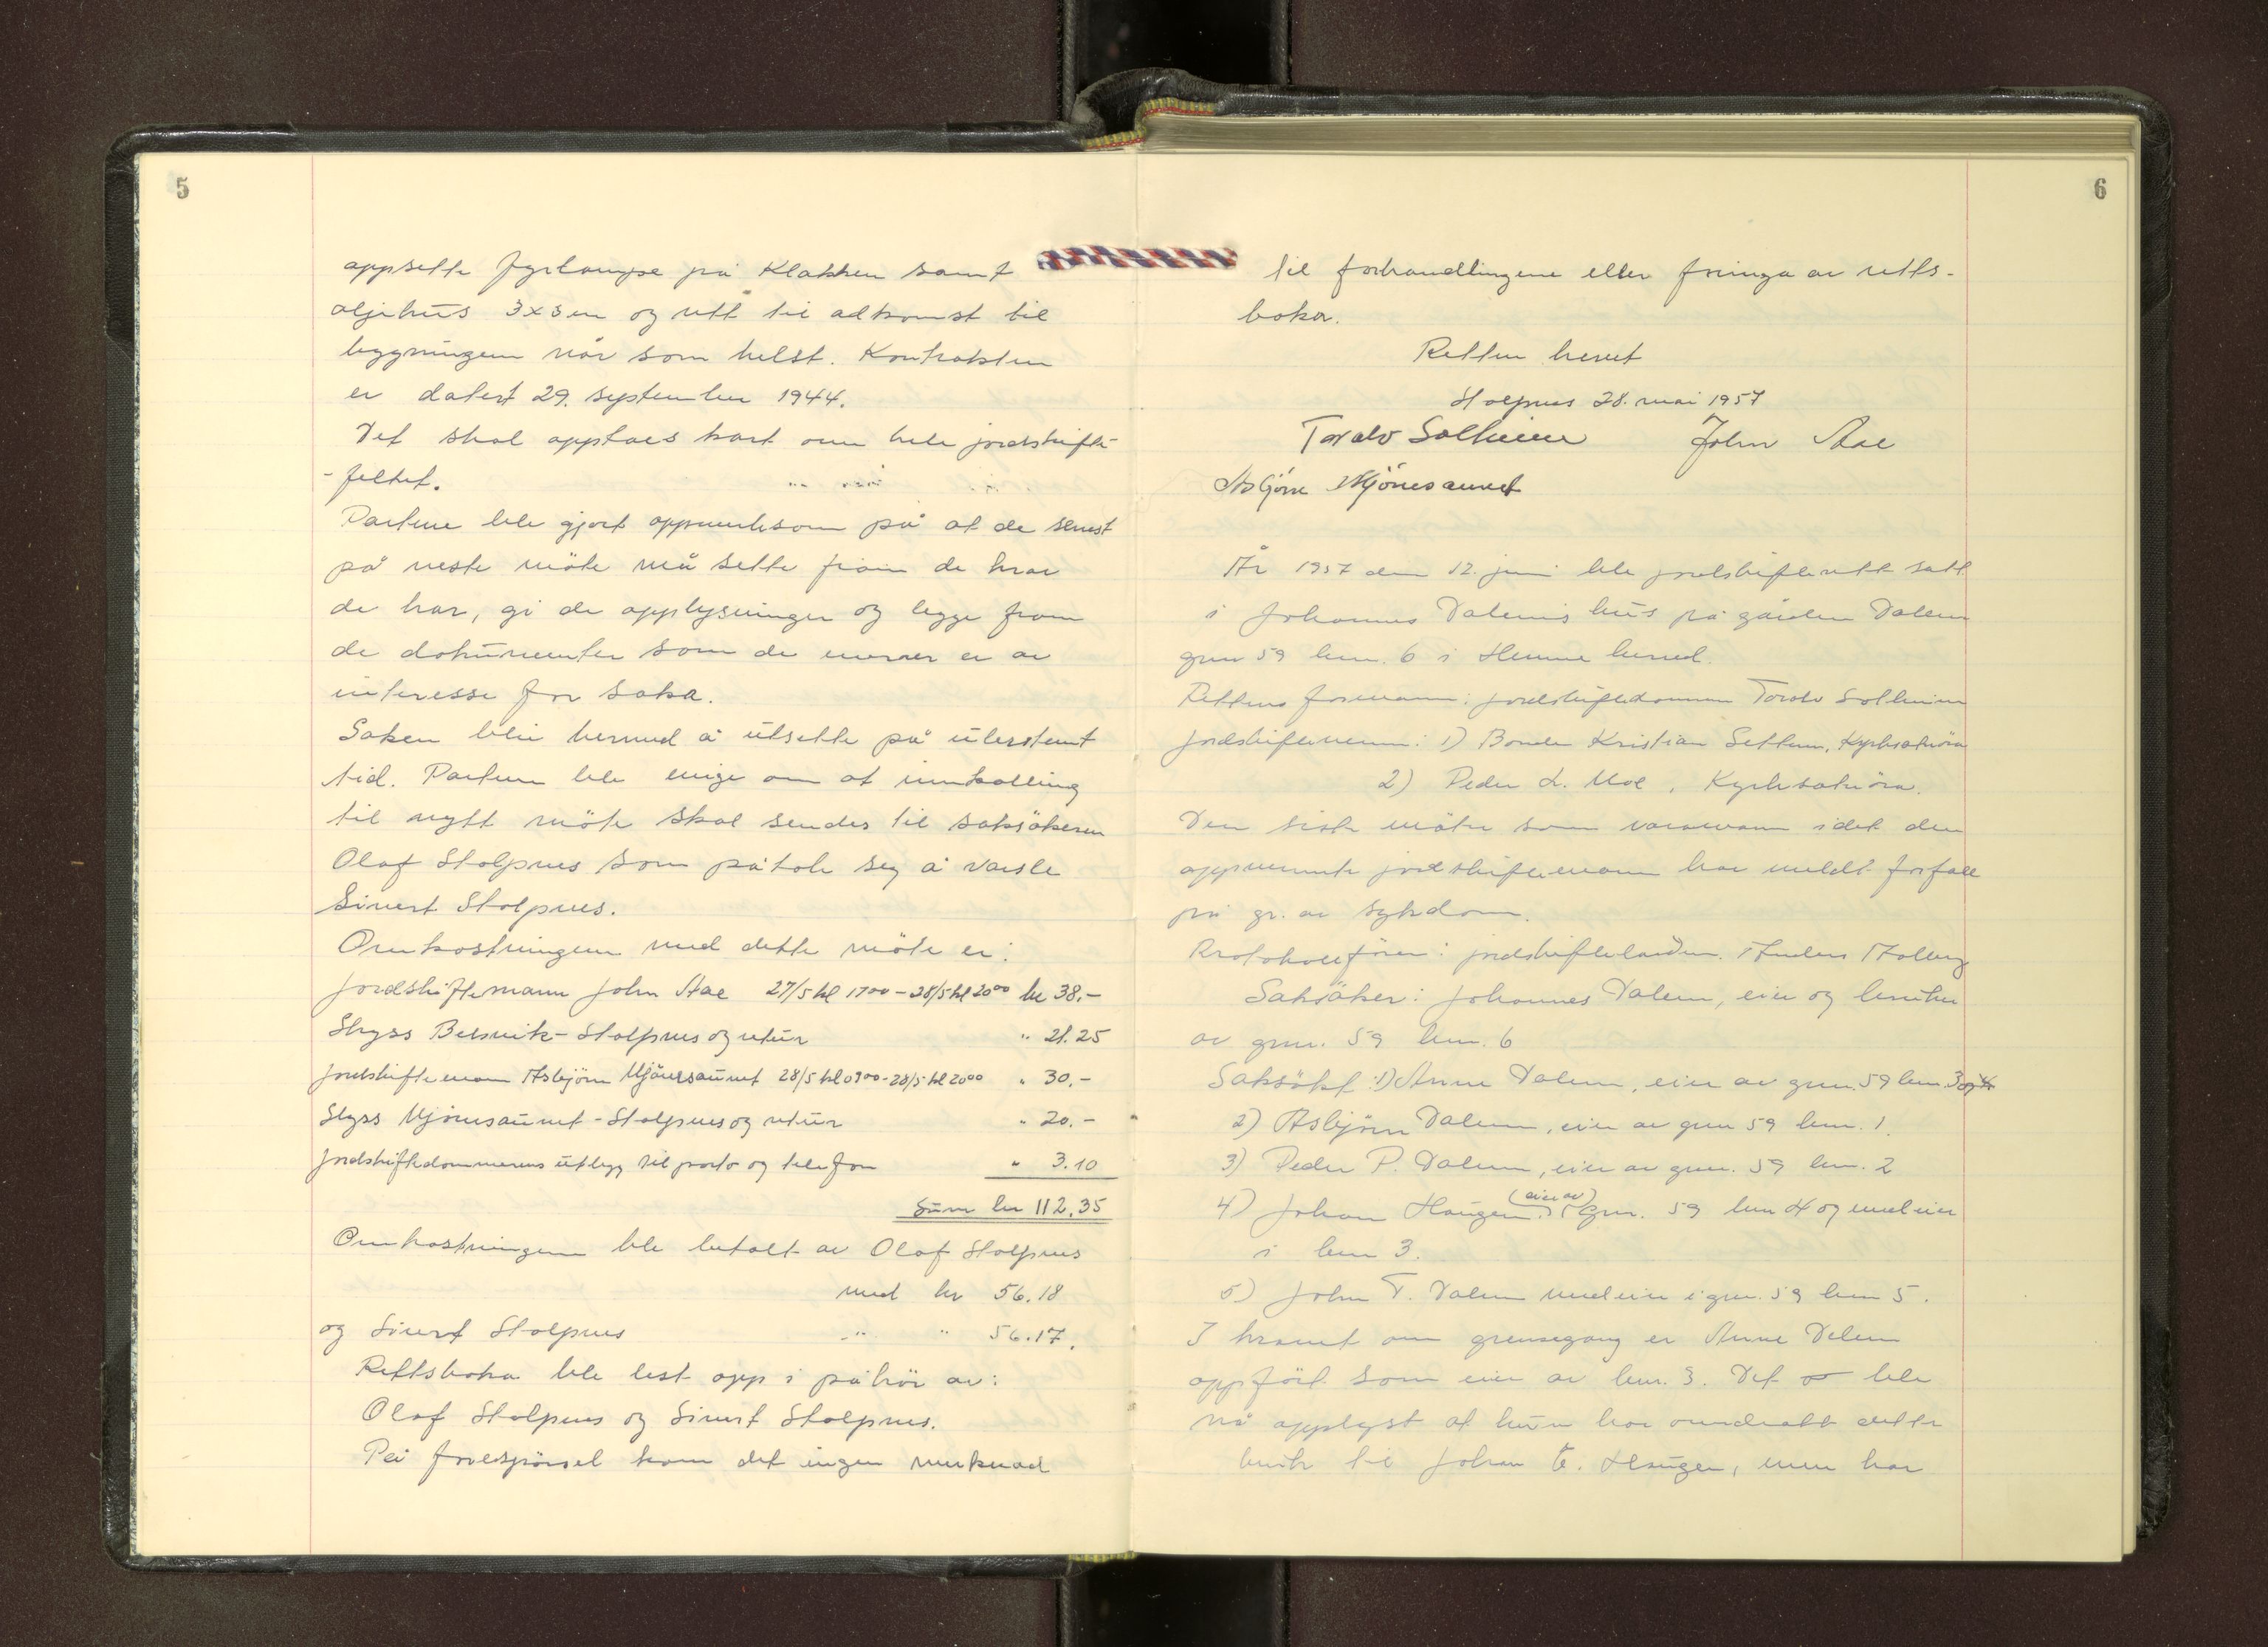 5
oppsette fyrlampe på Klakken samt
oljehus 3x3 m og rett til adkomst til
bygningen når som helst. Kontrakten
er datert 29. september 1944.
Det skal opptaes kart over hele jordskifte-
-feltet.
Partene ble gjort oppmerksom på at de senest
på neste møte må sette fram de krav
de har, gi de opplysninger og legge fram
de dokumenter som de mener er av
interesse for saka.
Saken blir hermed å utsette på ubestemt
tid. Partene ble enige om at innkalling
til nytt møte skal sendes til saksøkeren
Olaf Stolpnes som påtok seg å varsle
Sivert Stolpnes.
Omkostningene med dette møte er:
Jordskiftemann John Aae 27/5 kl 17⁰⁰ - 28/5 kl 20⁰⁰ kr 38.-
Skyss Belsvik - Stolpnes og retur " 21.25
Jordskiftemann Asbjörn Mjönesaunet 28/5 kl 09⁰⁰ - 28/5 kl 20⁰⁰ " 30.-
Skyss Mjönesaunet - Stolpnes og retur " 20.-
Jordskiftedommerens utlegg til porto og telefon " 3.10
Sum kr 112.35
Omkostningene ble betalt av Olaf Stolpnes
med kr 56.18
og Sivert Stolpnes -"- " 56.17.
Rettsboka ble lest opp i påhør av:
Olaf Stolpnes og Sivert Stolpnes.
På forespørsel kom det ingen merknad
6
til forhandlingene eller føringa av retts-
boka.
Retten hevet
Stolpnes 28. mai 1957
Tordv Solheim John Aae
Asbjörn Mjönesaunet
År 1957 den 12. juni ble jordskifterett satt
i Johannes Dalems hus på gården Dalem
gnr 59 bnr. 6 i Hemne herred.
Rettens formann: jordskiftedommer Tordv Solheim
Jordskiftemenn: 1) Bonde Kristian Settem, Kyrksæterøra
2) Peder L. Moe, Kyrksæterøra.
Den siste møter som varamann idet den
oppnevnte jordskiftemann har meldt forfall
på gr. av sykdom.
Protokollfører: jordskiftekand. Anders
Saksøker: Johannes Dalem, eier og bruker
av gnr. 59 bnr. 6
Saksøkt: 1) Anne Dalem, eier av gnr. 59 bnr. 3 og 4
2) Asbjørn Dalem, eier av gnr 59 bnr. 1.
3) Peder P. Dalem, eier av gnr. 59 bnr. 2
4) Johan Haugen (eier av) gnr. 59 bnr 4 og medeier
i bnr 3.
5) John T. Dalem medeier i gnr. 59 bnr 5.
I kravet om grensegang er Anne Dalem
oppført som eier av bnr. 3. Det ble
nå opplyst at hun har overdratt dette
bruk til Johan E. Haugen, men har